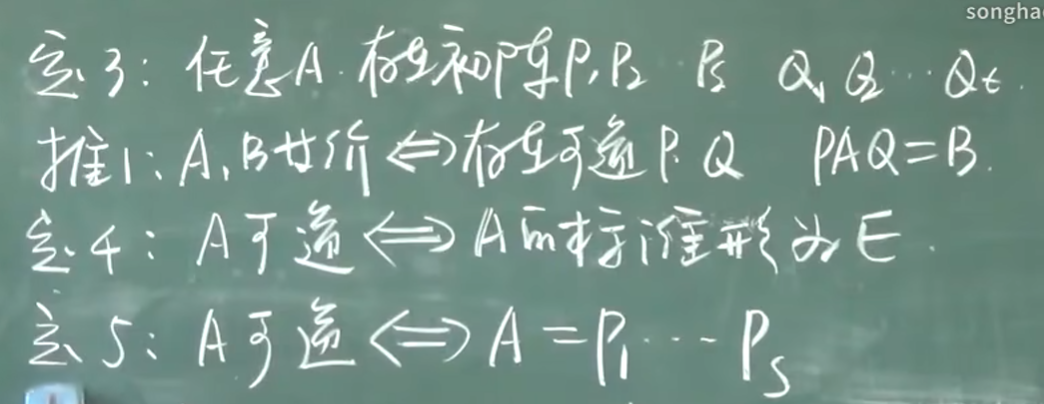 songha
定3：任意A.存在初阵P₁P₂…Pₛ Q₁Q₂…Qt.
推1：A,B等价⇔存在可逆P.Q PAQ=B.
定4：A可逆⇔A的标准形为E.
定5：A可逆⇔A=P₁…Pₛ